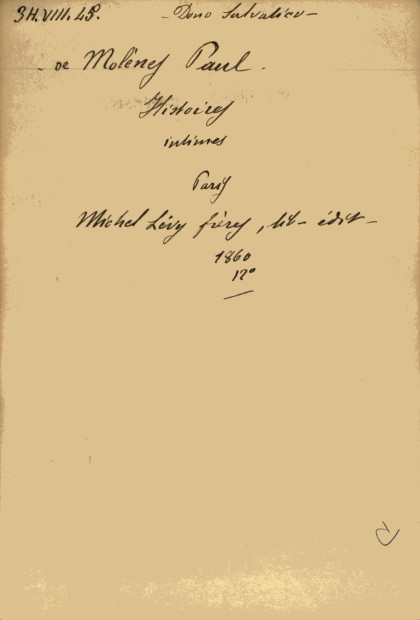 34.VIII.45. - Dono Salvalico -
- de Molènes Paul.
Histoires
intimes
Paris
Michel Lévy frères, lib - édit -
1860
12°